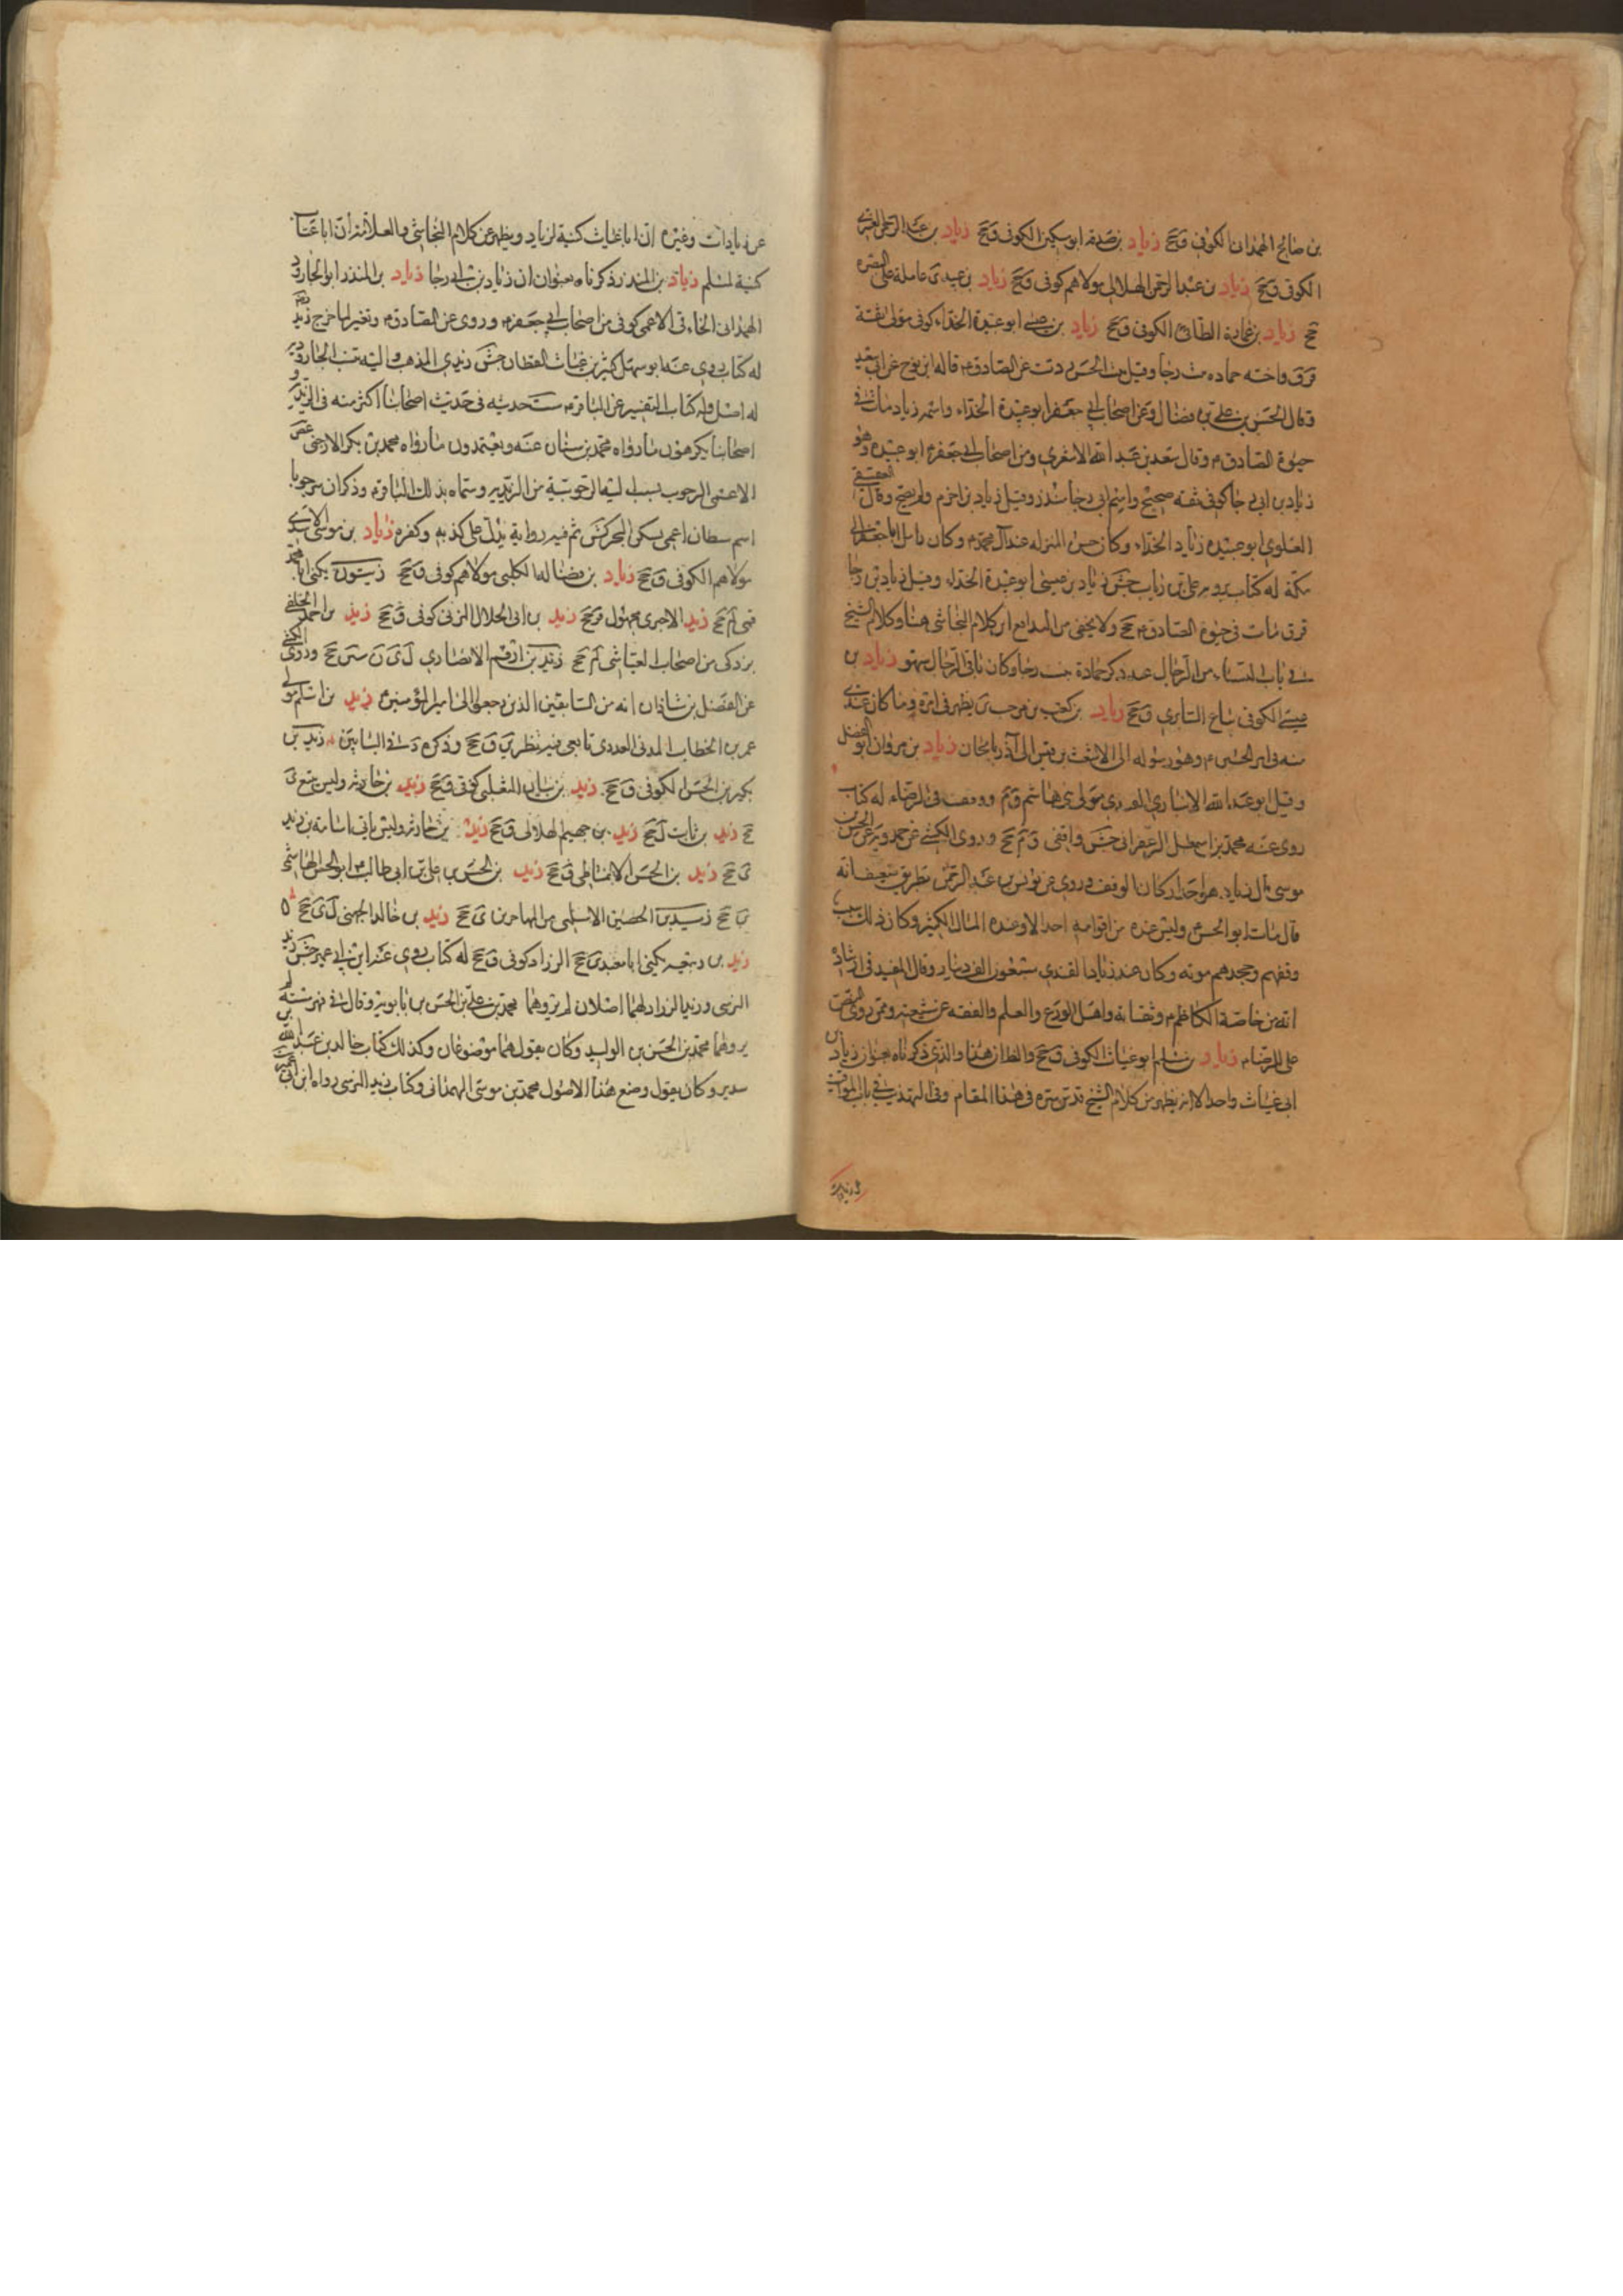 بن صالح الهمدانى الكوفى ق جح زياد بن صدقه ابو سكين الكوفى ق جح زياد بن عبد الرحمن
الكوفى ق جح زياد بن عبد الرحمن الهلالى مولاهم كوفى ق جح زياد بن عبيد ى عامله على البصره
جح زياد بن عماره الطائى الكوفى ق جح زياد بن عيسى ابو عبيدة الحذاء كوفى مولى ثقة
قر ق واخته حماده بنت رجا وقيل بنت الحسن روت عن الصادق ع قاله ابن نوح عن ابن سعيد
وقال الحسن بن على بن فضال ومن اصحاب ابى جعفر ابو عبيدة الحذاء واسمه زياد مات فى
حيوة الصادق ع وقال سعد بن عبد الله الاشعرى ومن اصحاب ابى جعفر ع ابو عبيده وهو
زياد بن ابى رجا كوفى ثقه صحيح واسم ابى رجا منذر وقيل زياد بن اخزم ولم يصح وقال العقيقى
العلوى ابو عبيده زياد الحذاء وكان حسن المنزله عند آل محمد ع وكان زامل ابا جعفر الى
مكة له كتاب يرويه على بن رئاب جش زياد بن عيسى ابو عبيدة الحذاء وقيل زياد بن رجا
قر ق مات فى حيوة الصادق ع جح ولا يخفى من التدافع بين كلام النجاشى هنا وكلام الشيخ
فى باب النساء من الرجال عند ذكر حمادة بنت رجا وكان باقى الرجال سهو زياد بن
عيسى الكوفى بياع السابرى ق جح زياد بن كعب بن مرحب ين يظهر فى امره وما كان عنده
منه فى امر الحسين ع وهو رسوله الى الاشعث بن قيس الى آذربايجان زياد بن مروان ابو الفضل
وقيل ابو عبد الله الانبارى القندى مولى بنى هاشم ق م ووقف فى الرضا ع له كتاب
روى عنه محمد بن اسمعيل الزعفرانى جش واقفى ق م جح وروى الكشى عن حمدويه عن الحسن بن
موسى قال زياد هو احد اركان الوقف وروى عن يونس بن عبد الرحمن بطريق ضعيف انه
قال مات ابو الحسن ع وليس عنده من قوامه احد الا وعنده المال الكثير وكان ذلك سبب
وقفهم وجحدهم موته وكان عند زياد القندى سبعون الف دينار وقال المفيد فى ارشاده
انه من خاصة الكاظم ع وثقاته واهل الورع والعلم والفقه من شيعته وممن روى النص
على الرضا ع زياد بن مسلم ابو غياث الكوفى ق جح والظان هذا والذى ذكرناه بعنوان زياد بن
ابى غياث واحد الا انه يظهر من كلام الشيخ قدس سره فى هذا المقام وفى التهذيب فى باب المواقيت
عن زيادات وغيره ان ابا غياث كنية لزياد ويظهر من كلام النجاشى والعلامة ان ابا غياث
كنية لمسلم زياد بن المنذر ذكرناه بعنوان ان زياد بن ابى رجا زياد بن المنذر ابو الجارود
الهمدانى الخارقى الاعمى كوفى من اصحاب ابى جعفر ع وروى عن الصادق ع وتغير لما خرج زيد
له كتاب روى عنه ابو سهل كثير بن عياش القطان جش زيدى المذهب واليه تنسب الجارودية
له اصل وله كتاب التفسير عن الباقر ع ست حديثه فى حديث اصحابنا اكثر منه فى الزيدية
اصحابنا يكرهون ما رواه محمد بن سنان عنه ويعتمدون ما رواه محمد بن بكر الارجنى
الاعمى السرحوب ينسب اليه السرحوبية من الزيديه وسماه بذلك الباقر ع وذكر ان سرحوبا
اسم شيطان اعمى يسكن البحر كش ثم فيه رواية تدل على كذبه وكفره زياد بن موسى الاسدى
مولاهم الكوفى ق جح زياد بن فضاله الكلبى مولاهم كوفى ق جح زيتون يكنى ابا محمد
قمى لم جح زيد الاجرى مجهول قر جح زيد بن ابى الحلال المزنى كوفى ق جح زيد بن احمد الخلقى
يزدكى من اصحاب العياشى لم جح زيد بن ارقم الانصارى ل ى ن سين جح وروى الكشى
عن الفضل بن شاذان انه من السابقين الذين رجعوا الى امير المؤمنين ع زيد بن اسلم مولى
عمر بن الخطاب المدنى العدوى تابعى فيه نظر ين ق جح وذكره د فى البابين زيد بن
بكير بن الحسن الكوفى ق جح زيد بن بيان التغلبى كوفى ق جح زيد بن حارثه وليس ى
جح زيد بن ثابت ل جح زيد بن جهيم الهلالى ق جح زيد بن حارثه وليس بابى اسامة بن زيد
ى جح زيد بن الحسن الانماطى ق جح زيد بن الحسن بن على بن ابى طالب ع ابو الحسن الهاشمى
ين جح زيد بن الحصين الاسلمى من المهاجرين ى جح زيد بن خالد الجهنى ل ى جح
زيد بن ربيعه يكنى ابا معبد ى جح الزراد كوفى ق جح له كتاب روى عنه ابن ابى عمير جش زيد
النرسى وزيد الزراد لهما اصلان لم يروهما محمد بن على بن الحسين بن بابويه وقال فى فهرسته لم
يروهما محمد بن الحسن بن الوليد وكان يقول هما موضوعان وكذلك كتاب خالد بن عبد الله بن
سدير وكان يقول وضع هذه الاصول محمد بن موسى الهمدانى وكتاب زيد النرسى رواه ابن ابى عمير